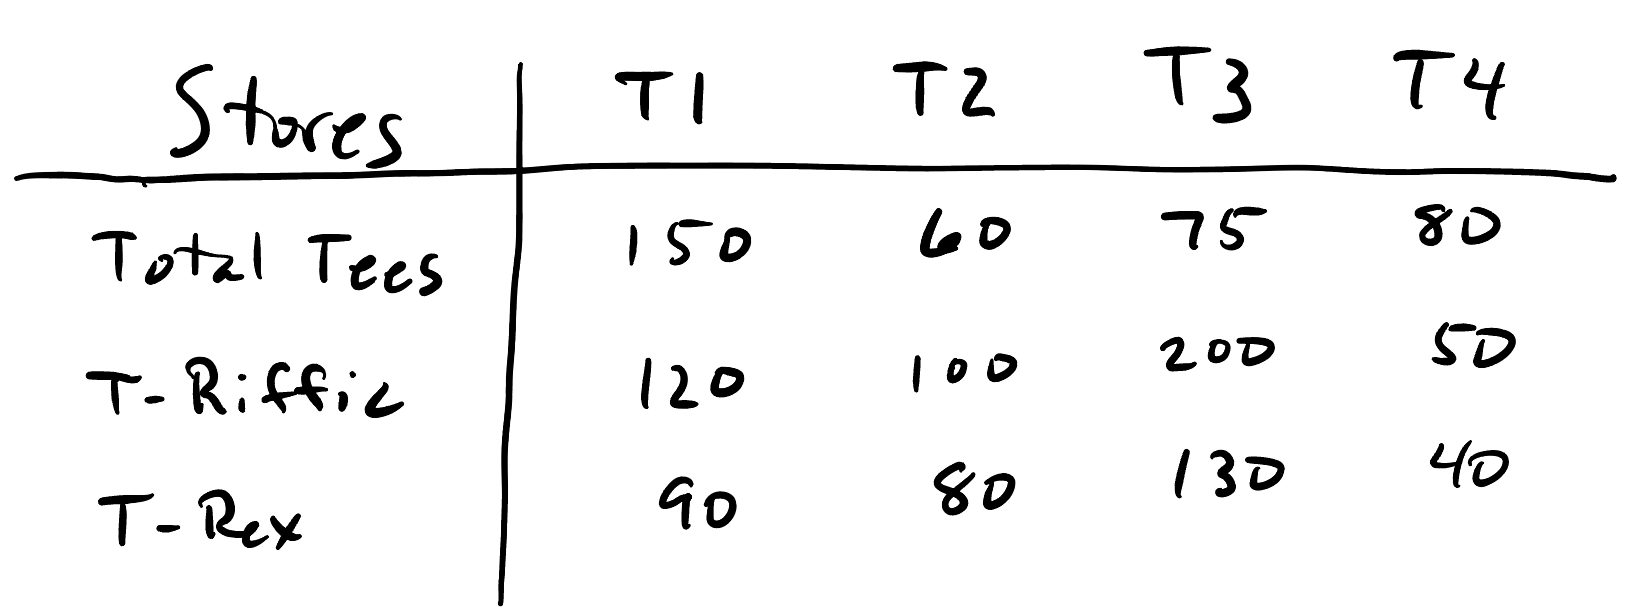 Stores T1 T2 T3 T4
Total Tees 150 60 75 80
T-Riffic 120 100 200 50
T-Rex 90 80 130 40